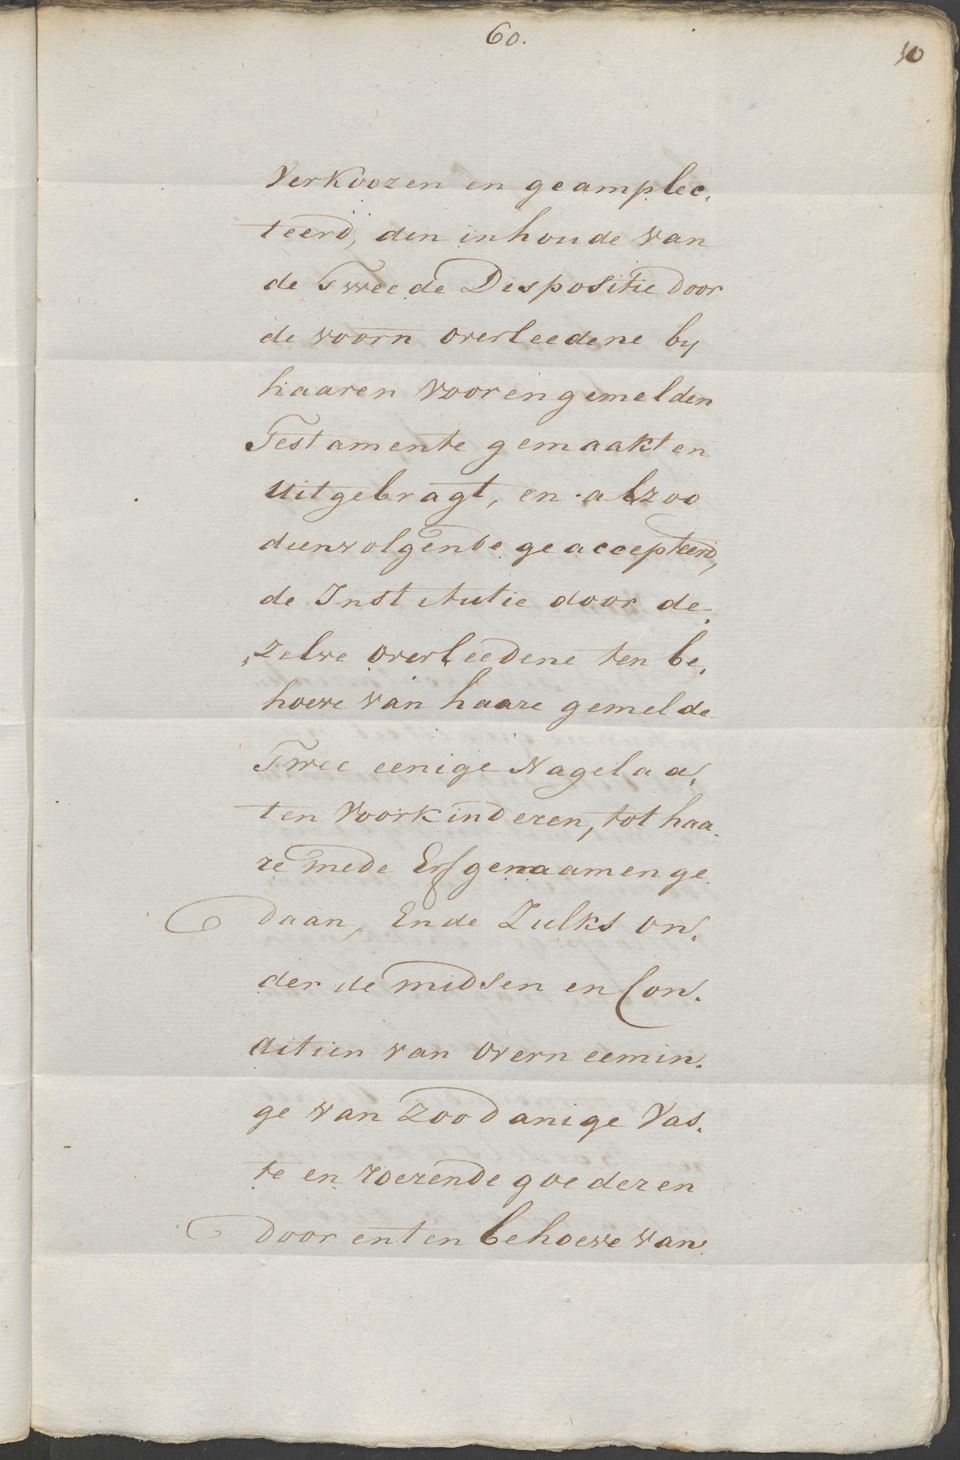 60.
10
Verkoozen en geamplec„
teerd, den inhoude van
de Tweede Dispositie door
de voorn overleedene by
haaren voorengemelden
Testamente gemaakt en
uitgebragt, en alzoo
dienvolgende geaccepteerd,
de Institutie door de„
„zelve overleedene ten be„
hoeve van haare gemelde
Twee eenige Nagelaa„
ten Voorkinderen, tot haa„
re mede Erfgenaamen ge
daan, Ende Zulks on„
der de midsen en Con„
ditien van overneemin„
ge van Zoodanige Vas„
te en roerende goederen
door en ten behoeve van